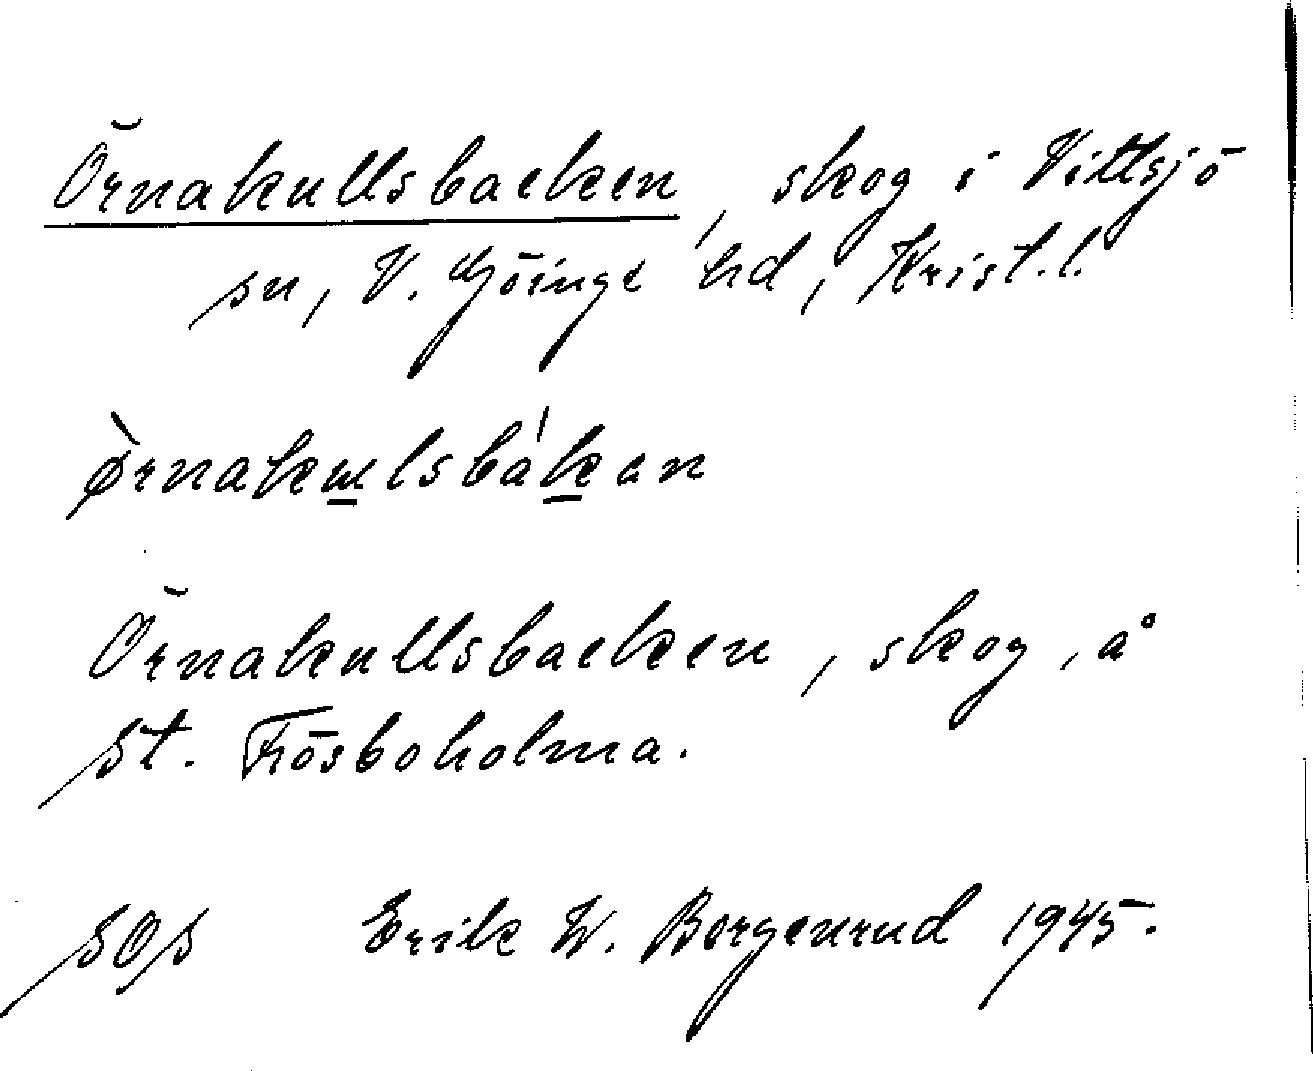 Örnakullsbacken, skog i Vittsjö
sn, V. Göinge hd, Krist. l.
ø̀rnakɯlsbákan
Örnakullsbacken, skog, å
St. Frösboholma.
SOS Erik W. Borgenrud 1945.